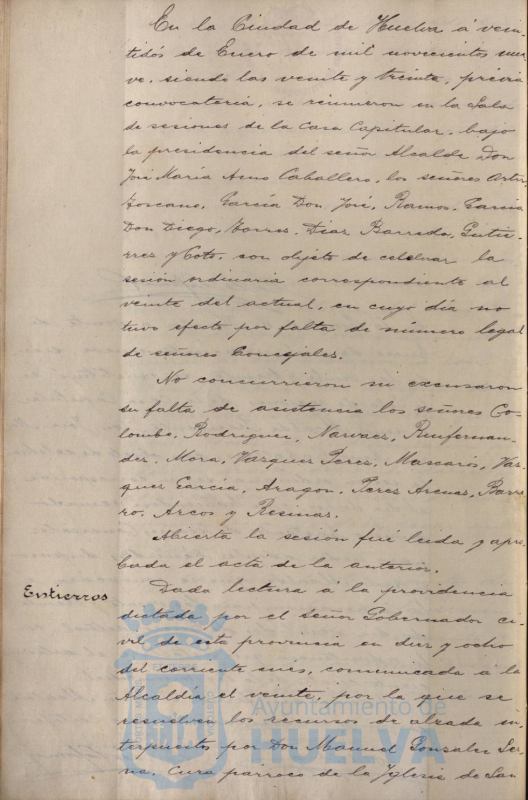 En la Ciudad de Huelva á vein-
tidós de Enero de mil novecientos nue-
ve, siendo las veinte y treinta, prévia
convocatoria, se reunieron en la Sala
de sesiones de la Casa Capitular, bajo
la presidencia del señor Alcalde Don
José María Amo Caballero, los señores
Toscano, García Don José, Ramos, García
Don Diego, Torres, Diaz Barreda, Gutie-
rrez y Coto, con objeto de celebrar la
sesión ordinaria correspondiente al
veinte del actual, en cuyo día no
tuvo efecto por falta de número legal
de señores Concejales.
No concurrieron ni excusaron
su falta de asistencia los señores Co-
lombo, Rodriguez, Narvaez, Ruifernan-
dez, Mora, Vázquez Perez, Mascarós, Vaz-
quez García, Aragon, Perez Arenas, Barre-
ro, Arcos y Resinas.
Abierta la sesión fué leida y apro-
bada el acta de la anterior.
Entierros
Dada lectura á la providencia
dictada por el señor Gobernador ci-
vil de esta provincia en diez y ocho
del corriente mes, comunicada á la
Alcaldía el veinte, por la que se
resuelven los recursos de alzada in-
terpuestos por Don Manuel Gonzalez Ser-
na, Cura párroco de la Yglesia de San
Ayuntamiento de
HUELVA